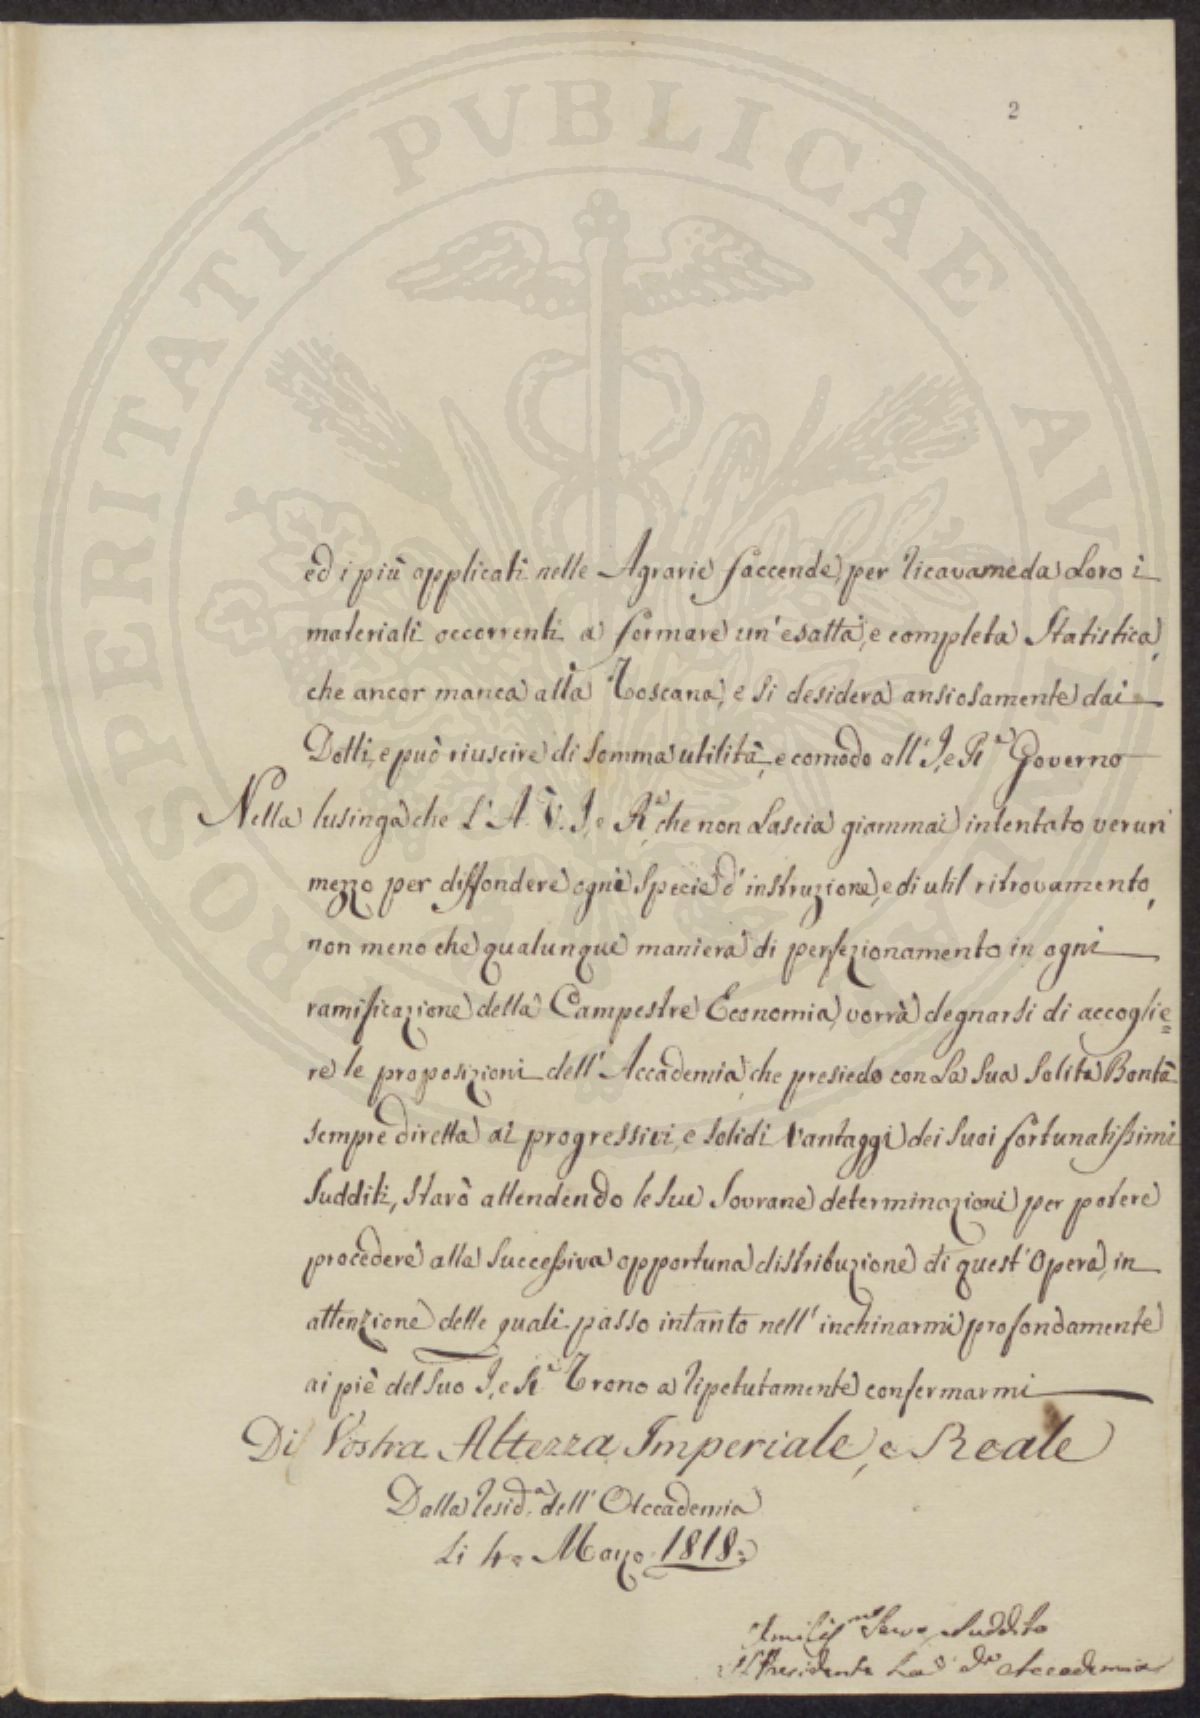 PROSPERITATI PUBLICAE AUGENDAE
2
ed i più applicati nelle Agrarie faccende, per ricavarne da Loro i
materiali occorrenti a formare un' esatta, e completa Statistica,
che ancor manca alla Toscana, e si desidera ansiosamente dai
Dotti, e può riuscire di somma utilità, e comodo all' I. e R.ª Governo
Nella lusinga che L' A. V. I. e R.ª che non Lascia giammai intentato verun
mezzo per diffondere ogni specie d' instruzione, e di util ritrovamento,
non meno che qualunque maniera di perfezionamento in ogni
ramificazione della Campestre Economia, vorrà degnarsi di accoglie=
re le proposizioni dell' Accademia, che presiedo con La Sua Solita Bontà
sempre diretta ai progressivi, e solidi Vantaggi dei Suoi fortunatissimi
Sudditi, Starò attendendo le Sue Sovrane determinazioni per potere
procedere alla Successiva opportuna distribuzione di quest' Opera, in
attenzione delle quali passo intanto nell' inchinarmi profondamente
ai piè del Suo I. e R.ª Trono a ripetutamente confermarmi
Di Vostra Altezza Imperiale, e Reale
Dalla Resid.ª dell' Accademia
Li 4= Marzo 1818=
Servo, e Suddito
Il Presidente Accademia